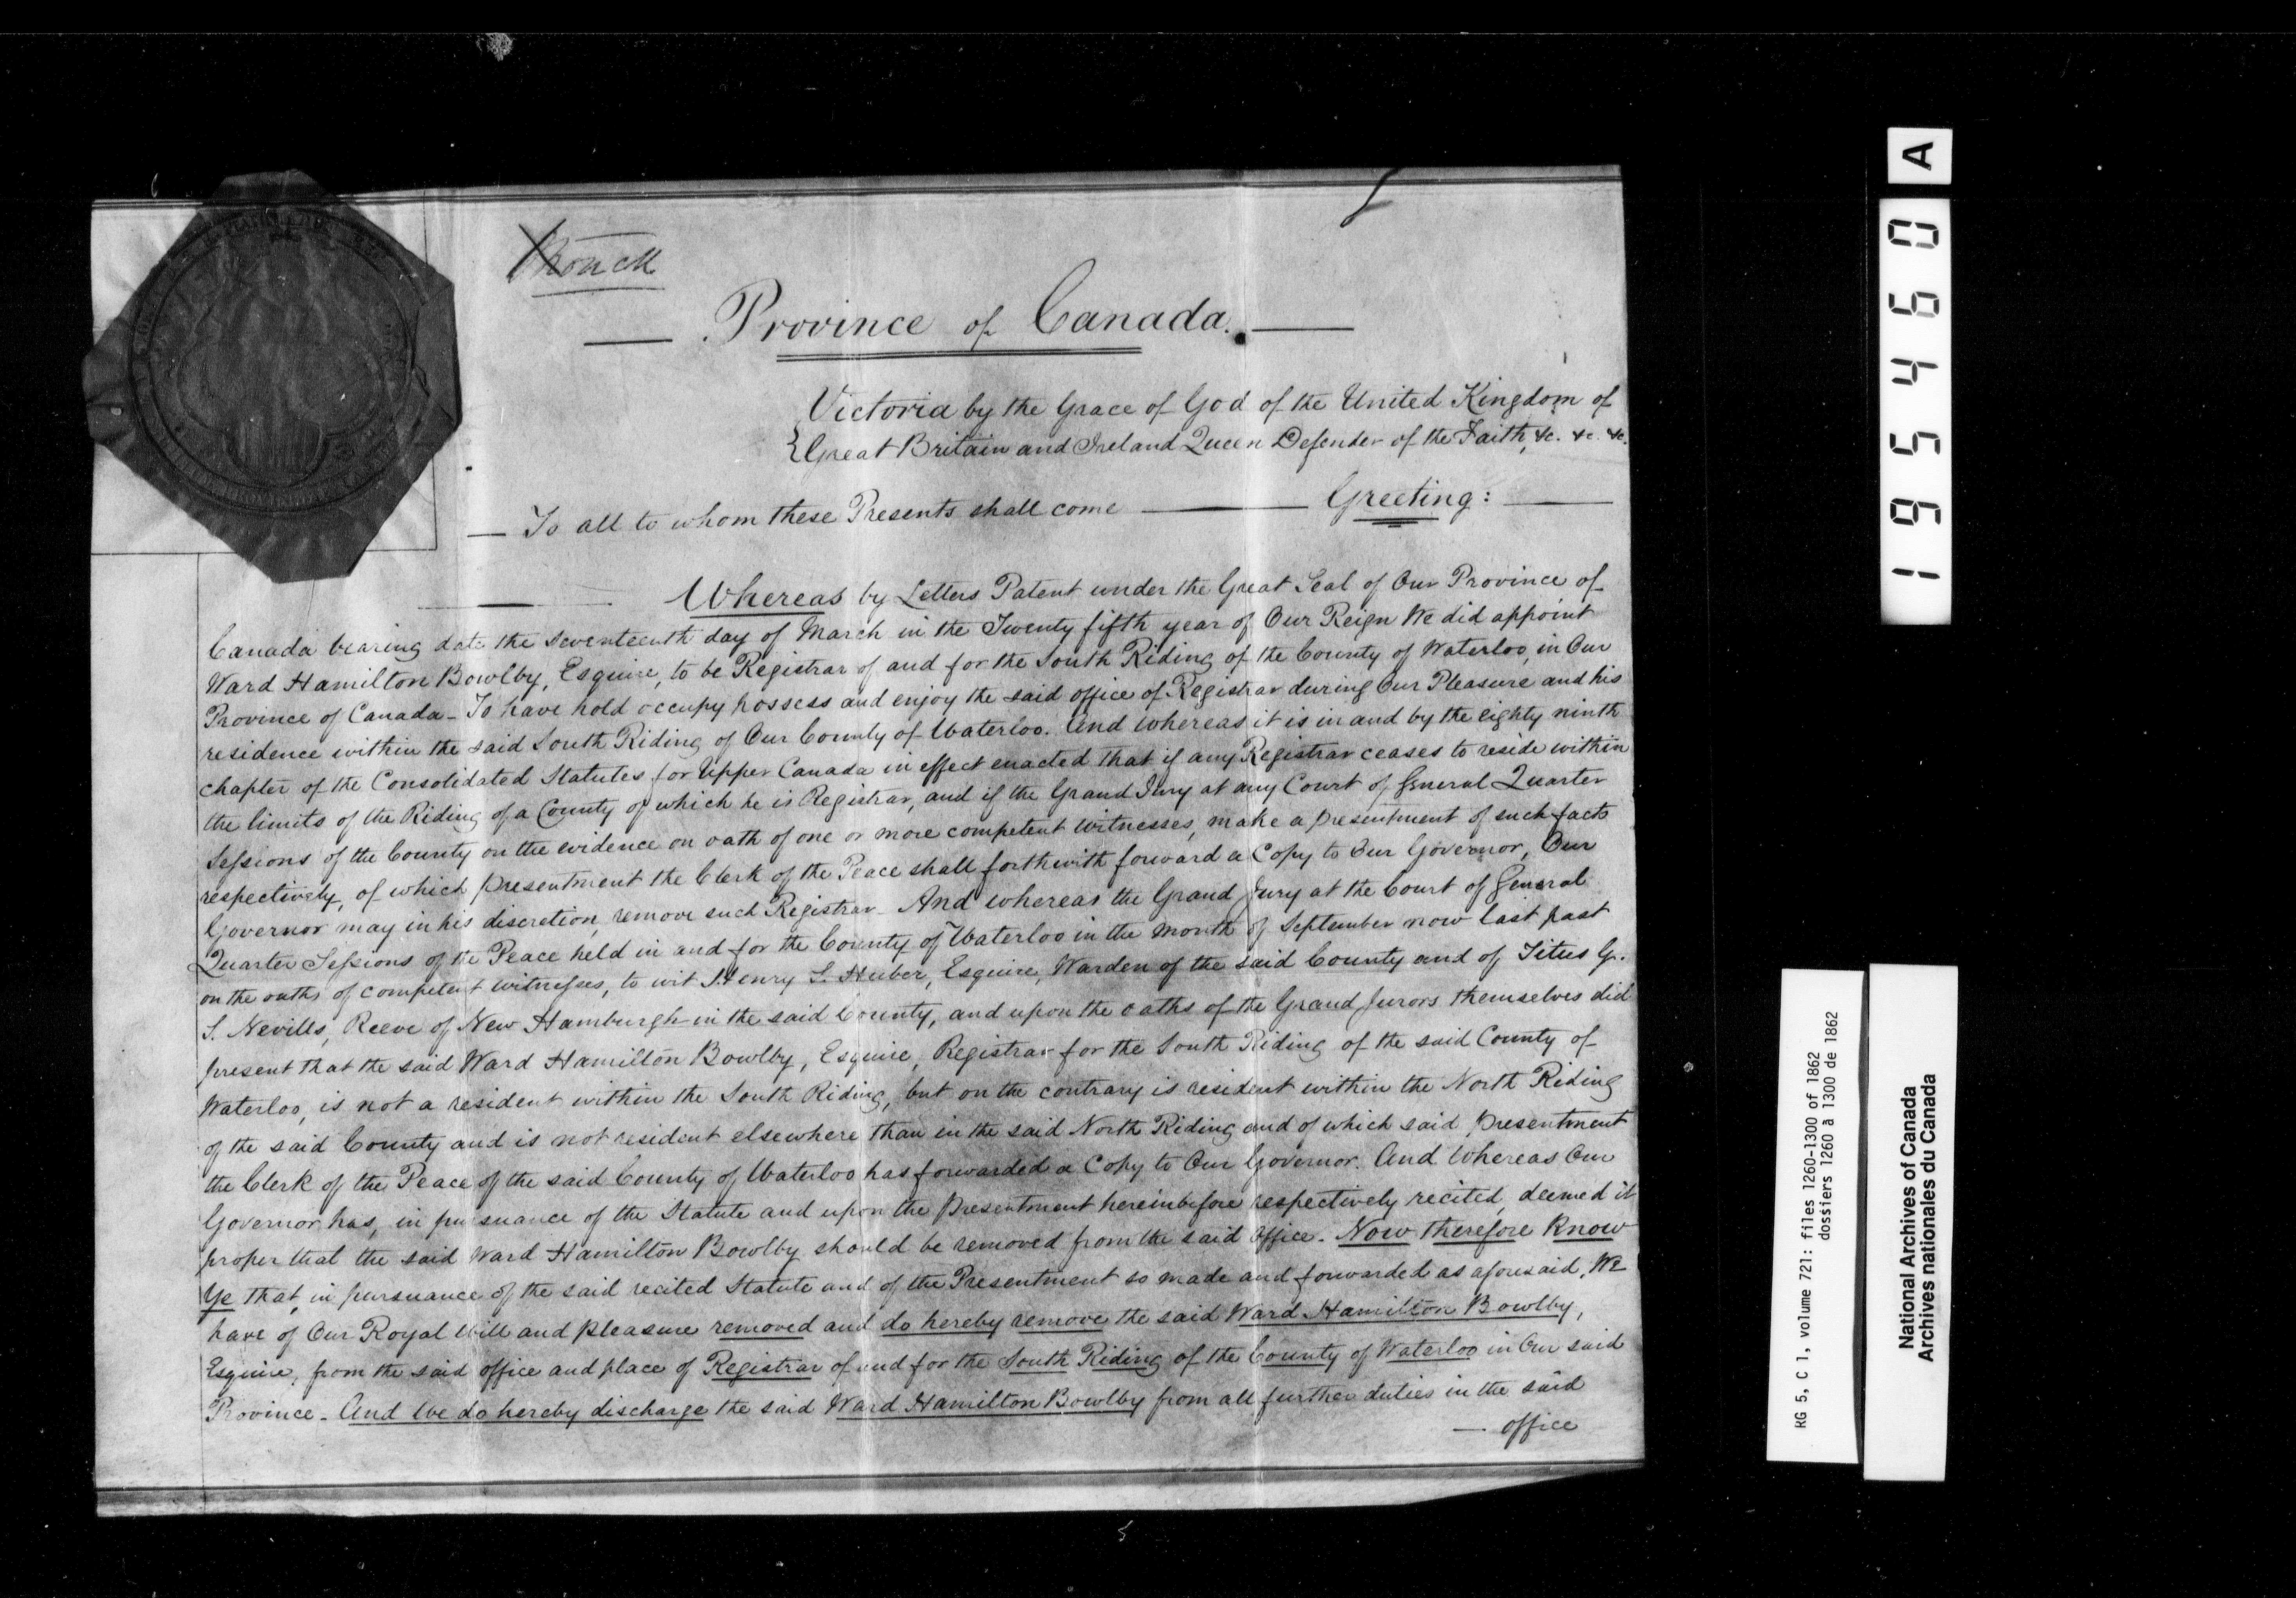 Monck
Province of Canada.
Victoria by the Grace of God of the United Kingdom of
Great Britain and Ireland Queen Defender of the Faith, &c. &c. &c.
To all to whom these Presents shall come — Greeting:
Whereas by Letters Patent under the Great Seal of Our Province of
Canada bearing date the seventeenth day of March in the Twenty fifth year of Our Reign We did appoint
Ward Hamilton Bowlby, Esquire, to be Registrar of and for the South Riding of the County of Waterloo, in Our
Province of Canada - To have hold occupy possess and enjoy the said office of Registrar during Our Pleasure and his
residence within the said South Riding of Our County of Waterloo. And whereas it is in and by the eighty ninth
chapter of the Consolidated Statutes for Upper Canada in effect enacted that if any Registrar ceases to reside within
the limits of the Riding of a County of which he is Registrar, and if the Grand Jury at any Court of General Quarter
Sessions of the County on the evidence on oath of one or more competent witnesses, make a presentment of such facts
respectively, of which presentment the Clerk of the Peace shall forthwith forward a Copy to Our Governor, Our
Governor may in his discretion, remove such Registrar - And whereas the Grand Jury at the Court of General
Quarter Sessions of the Peace held in and for the County of Waterloo in the month of September now last past
on the oaths of competent witnesses, to wit Henry S. Huber, Esquire, Warden of the said County and of Titus G.
S. Nevills, Reeve of New Hamburgh in the said County, and upon the oaths of the Grand Jurors themselves did
present that the said Ward Hamilton Bowlby, Esquire, Registrar for the South Riding of the said County of
Waterloo, is not a resident within the South Riding, but on the contrary is resident within the North Riding
of the said County and is not resident elsewhere than in the said North Riding and of which said presentment
the Clerk of the Peace of the said County of Waterloo has forwarded a Copy to Our Governor. And Whereas Our
Governor has, in pursuance of the Statute and upon the Presentment hereinbefore respectively recited, deemed it
proper that the said Ward Hamilton Bowlby should be removed from the said office - Now therefore Know
Ye that, in pursuance of the said recited Statute and of the Presentment so made and forwarded as aforesaid, We
have of Our Royal Will and pleasure removed and do hereby remove the said Ward Hamilton Bowlby,
Esquire, from the said office and place of Registrar of and for the South Riding of the County of Waterloo in Our said
Province - And We do hereby discharge the said Ward Hamilton Bowlby from all further duties in the said
— office
195460 A
RG 5, C 1, volume 721: files 1260-1300 of 1862
dossiers 1260 à 1300 de 1862
National Archives of Canada
Archives nationales du Canada